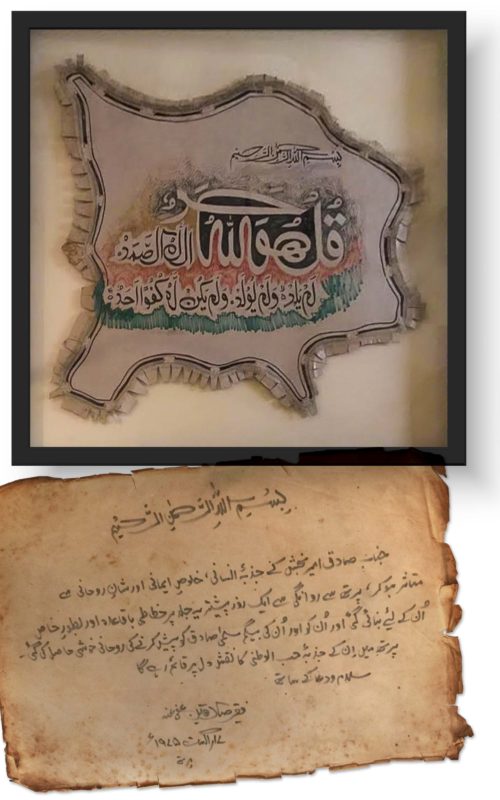 بسم الله الرحمن الرحيم
قُلْ هُوَ اللّٰهُ أَحَدٌ اللّٰهُ الصَّمَدُ
لَمْ يَلِدْ وَلَمْ يُولَدْ وَلَمْ يَكُنْ لَّهُ كُفُوًا أَحَدٌ
بسم الله الرحمن الرحيم
جناب صادق امیر بخش کے جذبۂ انسانی، خلوصِ ایمانی اور شانِ روحانی سے
متاثر ہو کر، پرتھ سے روانگی سے ایک روز پیشتر یہ جلد پر خطاطی باقاعدہ اور بطورِ خاص
اُن کے لیئے بنائی گئی اور اُن کو اور اُن کی بیگم سلمیٰ صادق کو پیش کرنے کی روحانی خوشی حاصل کی گئی۔
پرتھ میں اِن کے جذبۂ حب الوطنی کا نقش دل پر قائم رہے گا
سلام و دعا کے ساتھ
فقیر صادقین عفی عنہ
اگست ۱۹۸۵ء
پرتھ